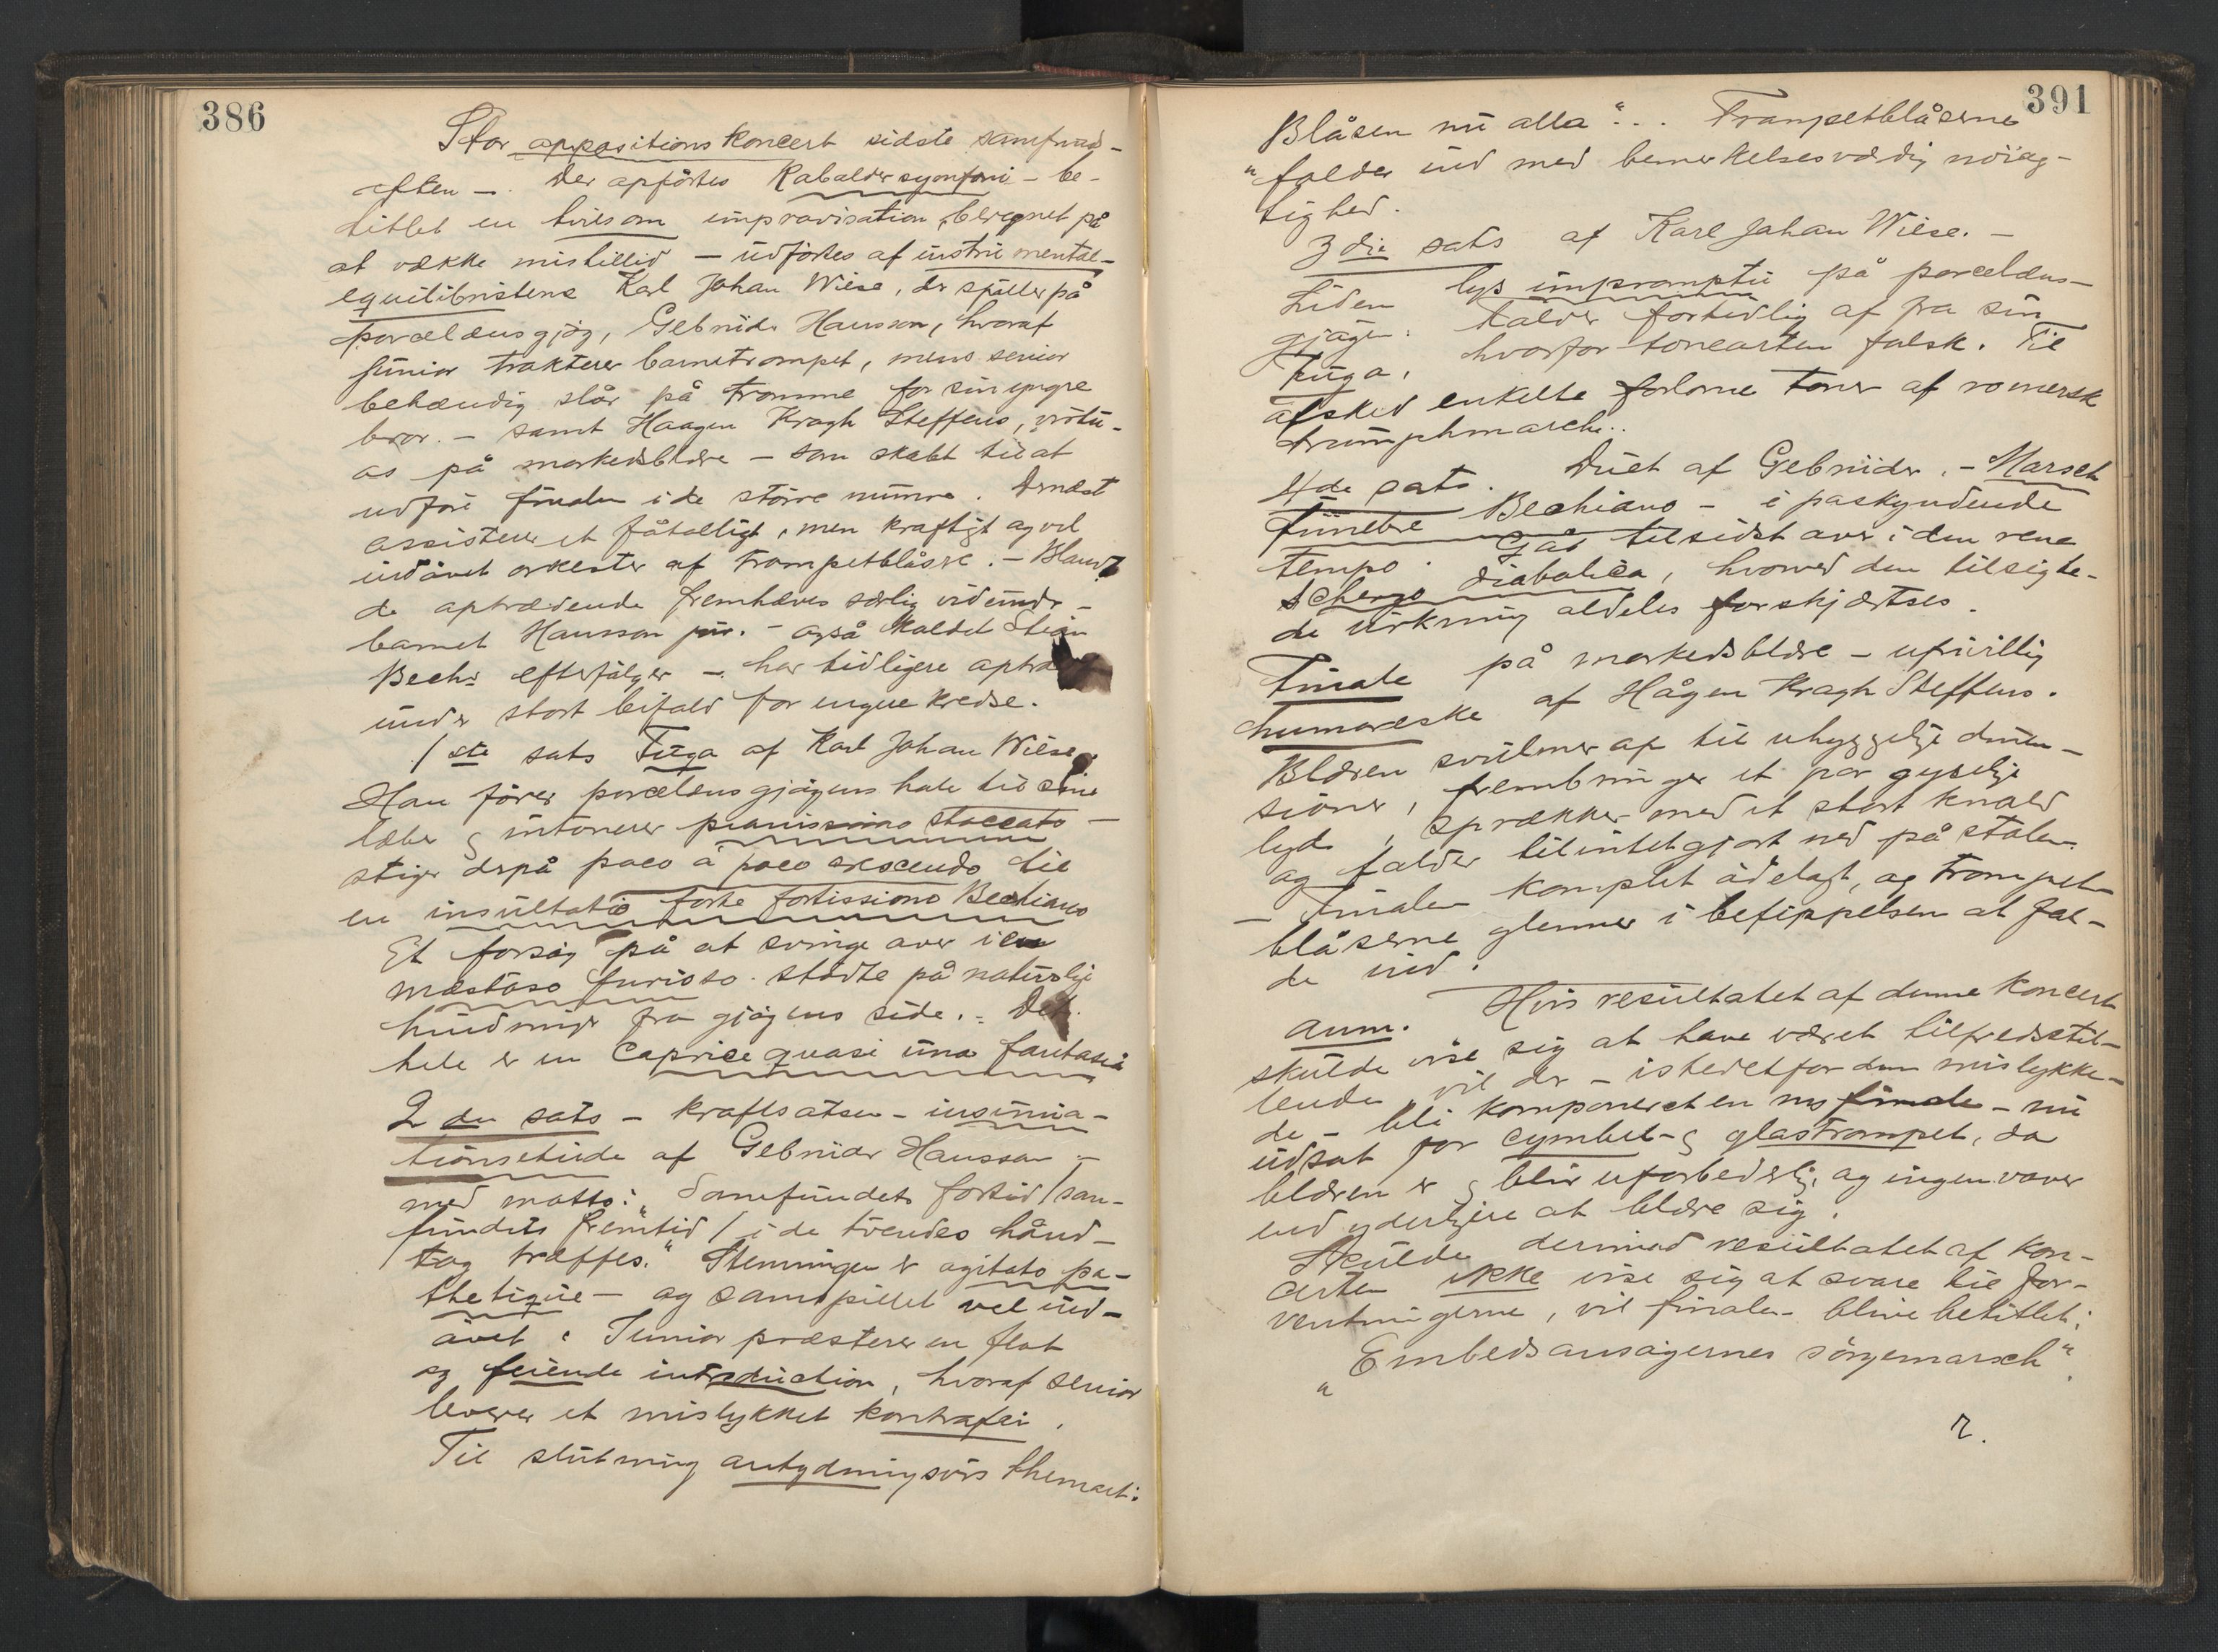 386
Stor oppositionskoncert sidste samfunds-
aften —. Der opførtes Kabaldersymfoni — be-
titlet en tvilsom improvisation, beregnet på
at vække mistillid — udførtes af instrumental-
equilibristene Karl Johan Wiese, der spiller på
porcelænsgjøg, Gebrüder Hansson, hvoraf
junior trakterer barnetrompet, mens senior
behændig slår på tromme for sin yngre
bror. — samt Haagen Kragh Steffens, virtu-
os på markedsblære — som skabt til at
udføre finalen i de større numre. Dernæst
assisterer et fåtalligt, men kraftigt og vel
indøvet orkester af trompetblåsere. — Blandt
de optrædende fremhæves særlig vidunder-
barnet Hansson jur. — også kaldet Stein
Bechs efterfølger — har tidligere optrå
under stort bifald for engere kredse.
1ste sats Fuga af Karl Johan Wiese.
Han fører porcelænsgjøgens hale til sine
læber & intonerer pianissimo staccato —
stiger derpå poco á poco crescendo til
en insultatio forte fortissimo Bechiano
Et forsøg på at svinge over i en
mæstoso furioso stødte på naturlige
hindringer fra gjøgens side. — Det
hele er en Caprice quasi una fantasia
2den sats — kraftsatsen — insinua-
tionsetude af Gebrüder Hansson —
med motto: "Samfundets fortid / sam-
fundets fremtid / i de tvendes hånd-
tog træffes." Stemningen er agitato pa-
thetique — og samspillet vel ind-
øvet. Junior præsterer en flot
og feiende introduction, hvoraf senior
leverer et mislykket kontrafei.
Til slutning antydningsvis themaet:
391
Blåsen nu alla"... Trompetblåserne
"falder ind med bemerkelsesværdig nøiag-
tighed.
3die sats af Karl Johan Wiese. —
Liden lys impromptu på porcelæns-
gjøgen: falder fortidlig af fra sin
fuga, hvorfor tonearten falsk. Til
afsked enkelte forlorne toner af romersk
triumphmarsch..
4de sats. Duet af Gebrüder. — Marsch
funebre Bechiano — i paskyndende
tempo. Går tilsidst over i den rene
scherzo diabolica, hvorved den tilsigte-
de virkning aldeles forskjærtses.
Finale på markedsblære — ufrivillig
humoreske af Hågen Kragh Steffens.
Blæren svulmer op til uhyggelige dimen-
sioner, frembringer et par gyselige
lyde, sprækker med et stort knald
og falder tilintetgjort ned på stolen.
— Finalen komplet ødelagt, og trompet-
blåserne glemmer i befippelsen at fal-
de ind.
Anm. Hvis resultatet af denne koncert
skulde vise sig at have været tilfredsstil-
lende, vil der — istedetfor den mislykke-
de — bli komponeret en ny finale — nu
udsat for cymbel- & glastrompet, da
blæren er & blir uforbederlig, og ingen vover
end yderligere at blære sig.
Skulde derimod resultatet af kon-
certen ikke vise sig at svare til for-
ventningerne, vil finalen blive betitlet:
"Embedsansøgernes sørgemarsch".
r.